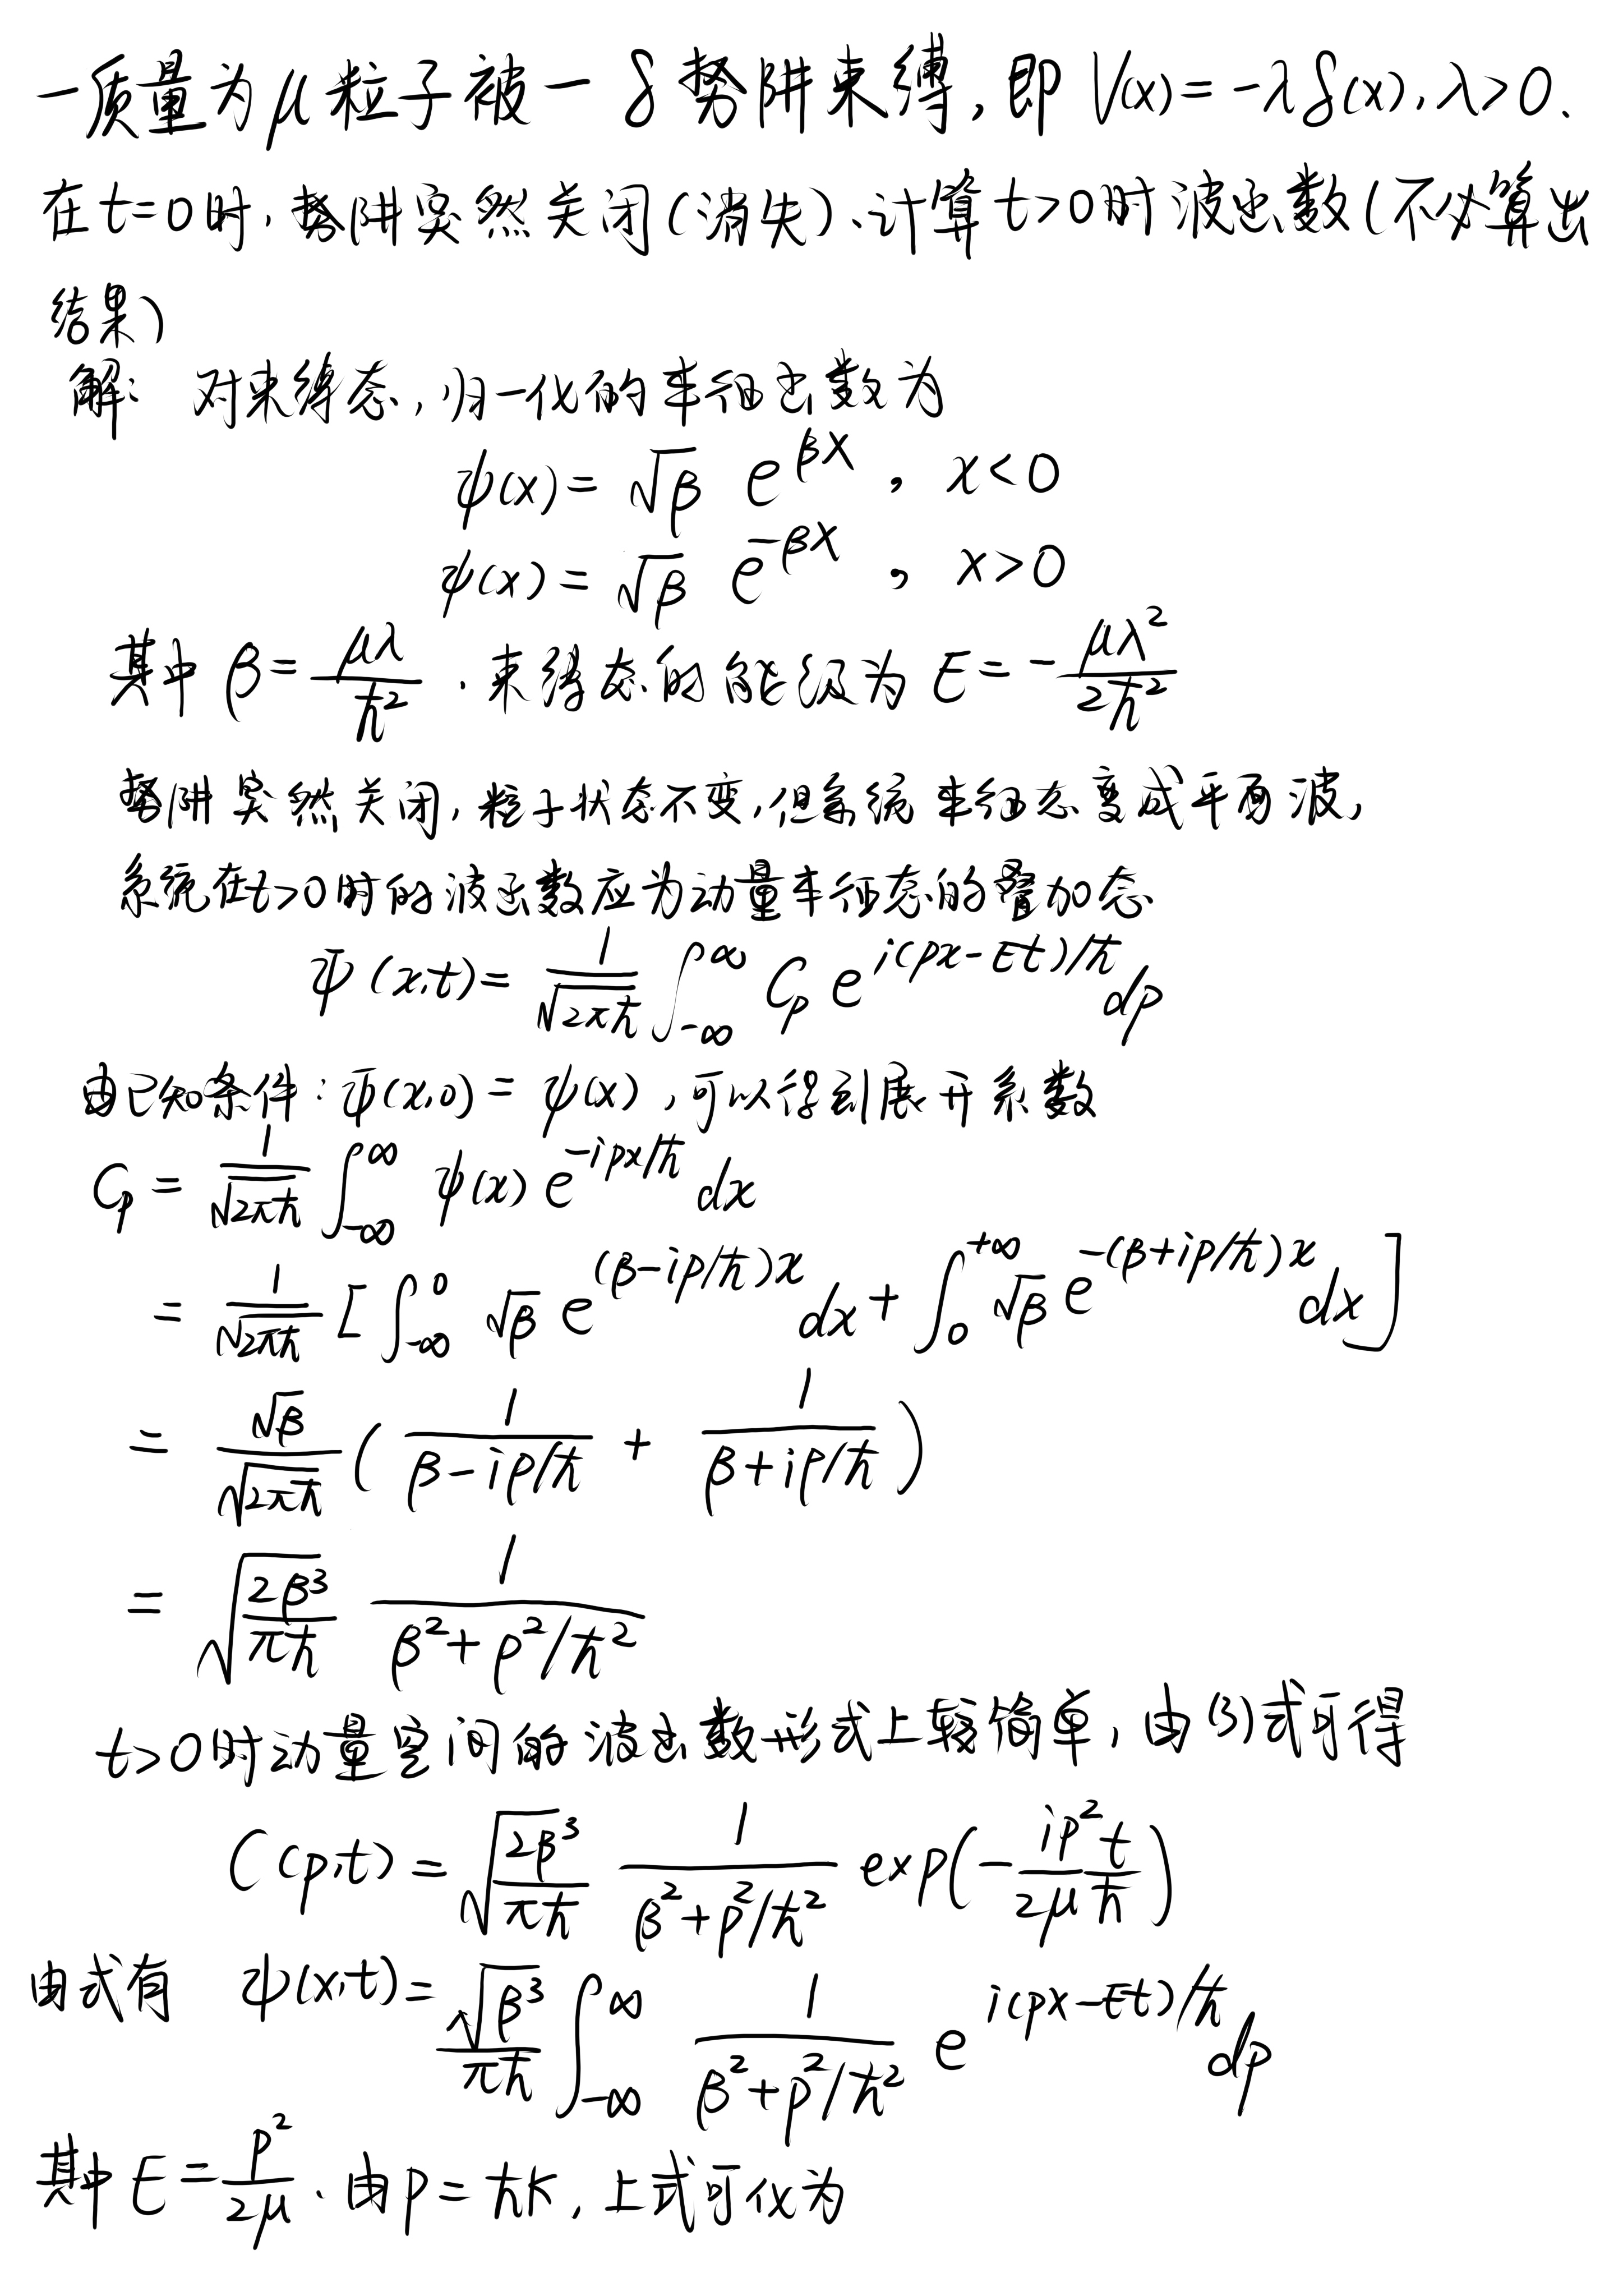 一质量为μ粒子被一δ势阱束缚,即 V(x)=-λδ(x),λ>0.
在t=0时,势阱突然关闭(消失).计算t>0时波函数(不必算出
结果)
解: 对束缚态,归一化的本征函数为
ψ(x)=√β e^{βx}, x<0
ψ(x)=√β e^{-βx}, x>0
其中 β=μλ/ħ². 束缚态的能级为 E=-μλ²/2ħ²
势阱突然关闭,粒子状态不变,但系统本征态变成平面波,
系统在t>0时的波函数应为动量本征态的叠加态
Ψ(x,t)=1/√(2πħ) ∫_{-∞}^{∞} C_p e^{i(px-Et)/ħ} dp
由已知条件:Ψ(x,0)=ψ(x),可以得到展开系数
C_p=1/√(2πħ) ∫_{-∞}^{∞} ψ(x) e^{-ipx/ħ} dx
=1/√(2πħ) [∫_{-∞}^{0} √β e^{(β-ip/ħ)x} dx+∫_{0}^{+∞} √β e^{-(β+ip/ħ)x} dx]
=√β/√(2πħ) (1/(β-ip/ħ) + 1/(β+ip/ħ))
=√(2β³/πħ) 1/(β²+p²/ħ²)
t>0时动量空间的波函数形式上较简单,由(3)式可得
C(p,t)=√(2β³/πħ) 1/(β²+p²/ħ²) exp(-ip²t/2μħ)
由式有 ψ(x,t)=√β³/πħ ∫_{-∞}^{∞} 1/(β²+p²/ħ²) e^{i(px-Et)/ħ} dp
其中 E=p²/2μ. 由p=ħk,上式可化为